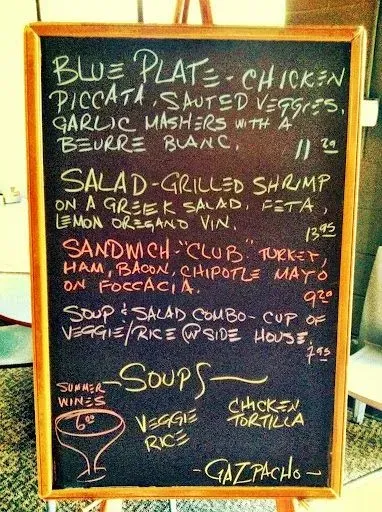 BLUE PLATE - CHICKEN
PICCATA, SAUTED VEGGIES,
GARLIC MASHERS WITH A
BEURRE BLANC.
SALAD - GRILLED SHRIMP
ON A GREEK SALAD. FETA,
LEMON OREGANO VIN.
13.95
SANDWICH - "CLUB" TURKEY,
HAM, BACON, CHIPOTLE MAYO
ON FOCCACIA.
SOUP & SALAD COMBO - CUP OF
VEGGIE/RICE W SIDE HOUSE.
7.95
SOUPS
SUMMER
WINES
CHICKEN
TORTILLA
VEGGIE
RICE
- GAZPACHO -